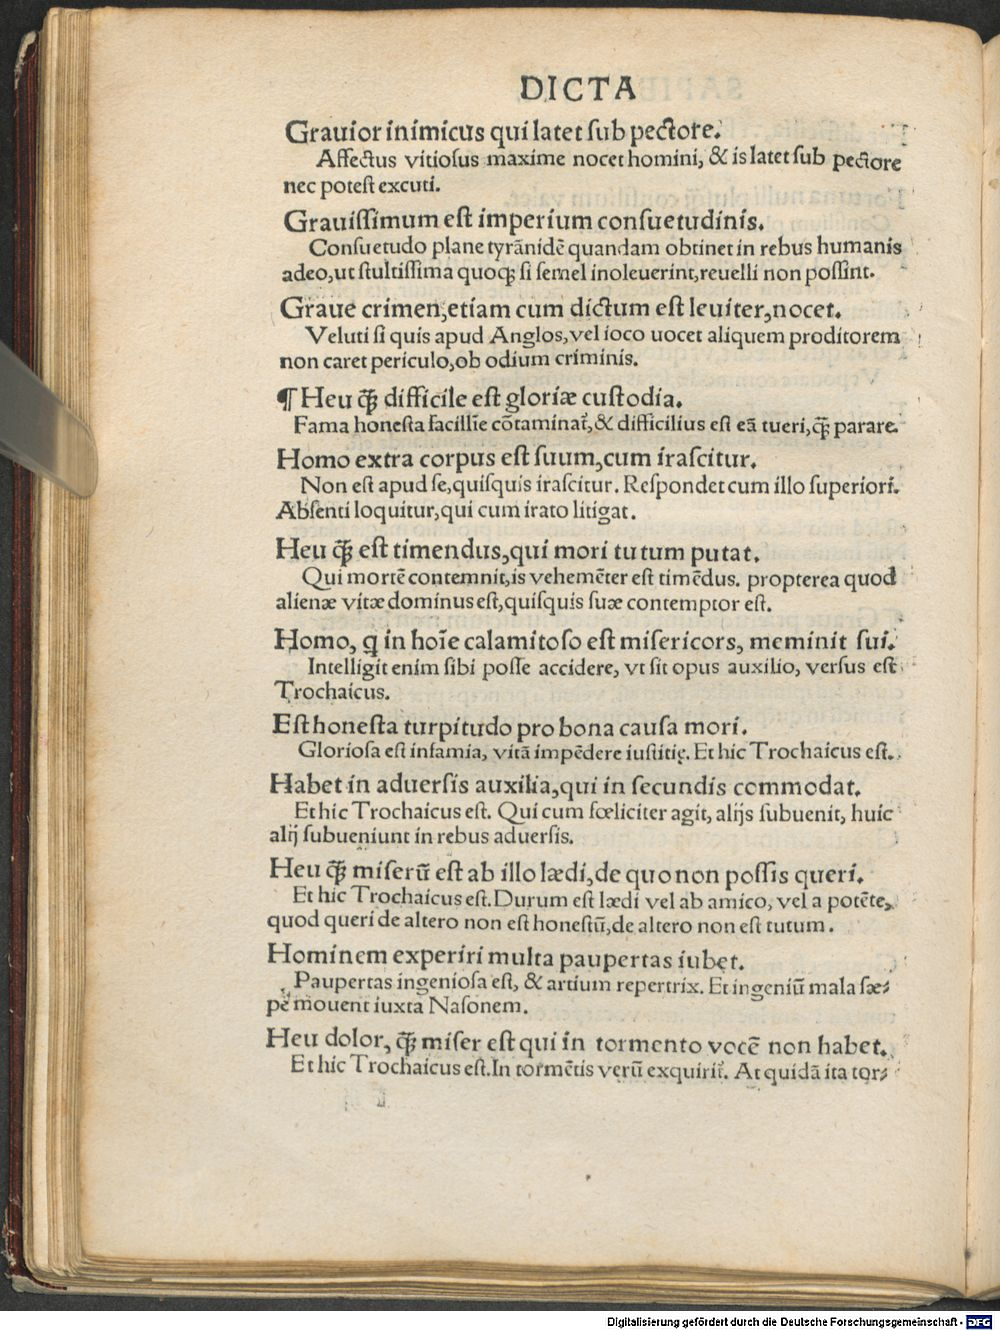 DICTA
Grauior inimicus qui latet sub pectore.
Affectus vitiosus maxime nocet homini, & is latet sub pectore
nec potest excuti.
Grauissimum est imperium consuetudinis.
Consuetudo plane tyrãnidẽ quandam obtinet in rebus humanis
adeo,ut stultissima quoqꝫ si semel inoleuerint,reuelli non possint.
Graue crimen,etiam cum dictum est leuiter,nocet.
Veluti si quis apud Anglos,vel ioco uocet aliquem proditorem
non caret periculo,ob odium criminis.
¶ Heu q̃ꝫ difficile est gloriæ custodia.
Fama honesta facillĩe cõtaminat᷑,& difficilius est eã tueri,q̃ꝫ parare.
Homo extra corpus est suum,cum irascitur.
Non est apud se,quisquis irascitur. Respondet cum illo superiori.
Absenti loquitur,qui cum irato litigat.
Heu q̃ꝫ est timendus,qui mori tutum putat.
Qui mortẽ contemnit,is vehemẽter est timẽdus. propterea quod
alienæ vitæ dominus est,quisquis suæ contemptor est.
Homo, q in hoĩe calamitoso est misericors, meminit sui.
Intelligit enim sibi posse accidere, vt sit opus auxilio, versus est
Trochaicus.
Est honesta turpitudo pro bona causa mori.
Gloriosa est infamia, vitã impẽdere iustitię. Et hic Trochaicus est.
Habet in aduersis auxilia,qui in secundis commodat.
Et hic Trochaicus est. Qui cum fœliciter agit, alijs subuenit, huic
alij subueniunt in rebus aduersis.
Heu q̃ꝫ miserũ est ab illo lædi,de quo non possis queri.
Et hic Trochaicus est.Durum est lædi vel ab amico, vel a potẽte,
quod queri de altero non est honestũ,de altero non est tutum.
Hominem experiri multa paupertas iubet.
Paupertas ingeniosa est, & artium repertrix. Et ingeniũ mala sæ⸗
pe mouent iuxta Nasonem.
Heu dolor, q̃ꝫ miser est qui in tormento vocẽ non habet.
Et hic Trochaicus est.In tormẽtis verũ exquirit᷑. At quidã ita tor⸗
Digitalisierung gefördert durch die Deutsche Forschungsgemeinschaft - DFG